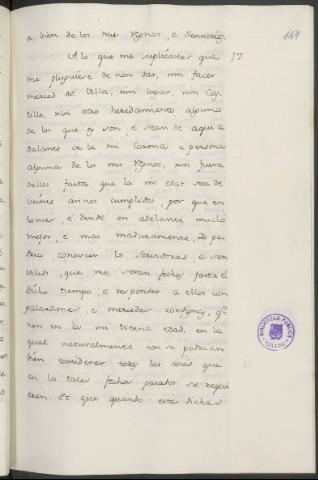 149
a bien de los mis Regnos, e Sennorios.
A lo que me suplicaron que 17.
me pluguiere de non dar, nin facer
merced de Villa, nin lugar, nin Cas
tillo, nin otro heredamiento alguno
de los que oy son, e sean de aqui a
delante de la mi Corona a persona
alguna de los mis Regnos, nin fuera
dellos fasta que la mi edat sea de
veinte annos cumplidos, por que en
tonce, e dende en adelante mucho
mejor, e mas maduramente, Yo po
dria conocer los servidores, e ser
vicios, que me seran fechos fasta el
dicho tiempo, e responder a ellos con
galardones, e mercedes condignas, q.
non en la mi tierna edad, en la
qual naturalmente non se podrian
bien considerar todas las cosas que
en los tales fechos parado se requi
eren. Et que quando estas dichas
BIBLIOTECA PUBLICA
TOLEDO